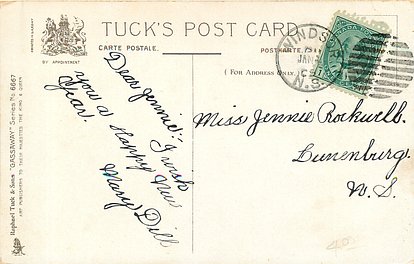 TUCK'S POST CARD
CARTE POSTALE.
POSTKARTE.
BY APPOINTMENT
(For Address Only.)
Raphael Tuck & Sons "GASSAWAY" Series No 6667
ART PUBLISHERS TO THEIR MAJESTIES THE KING & QUEEN
Dear Jennie: I wish
you a Happy New
Year.
Mary Dill
WINDSOR
JAN
N.S.
Miss Jennie Rockwell.
Lunenburg.
N. S.